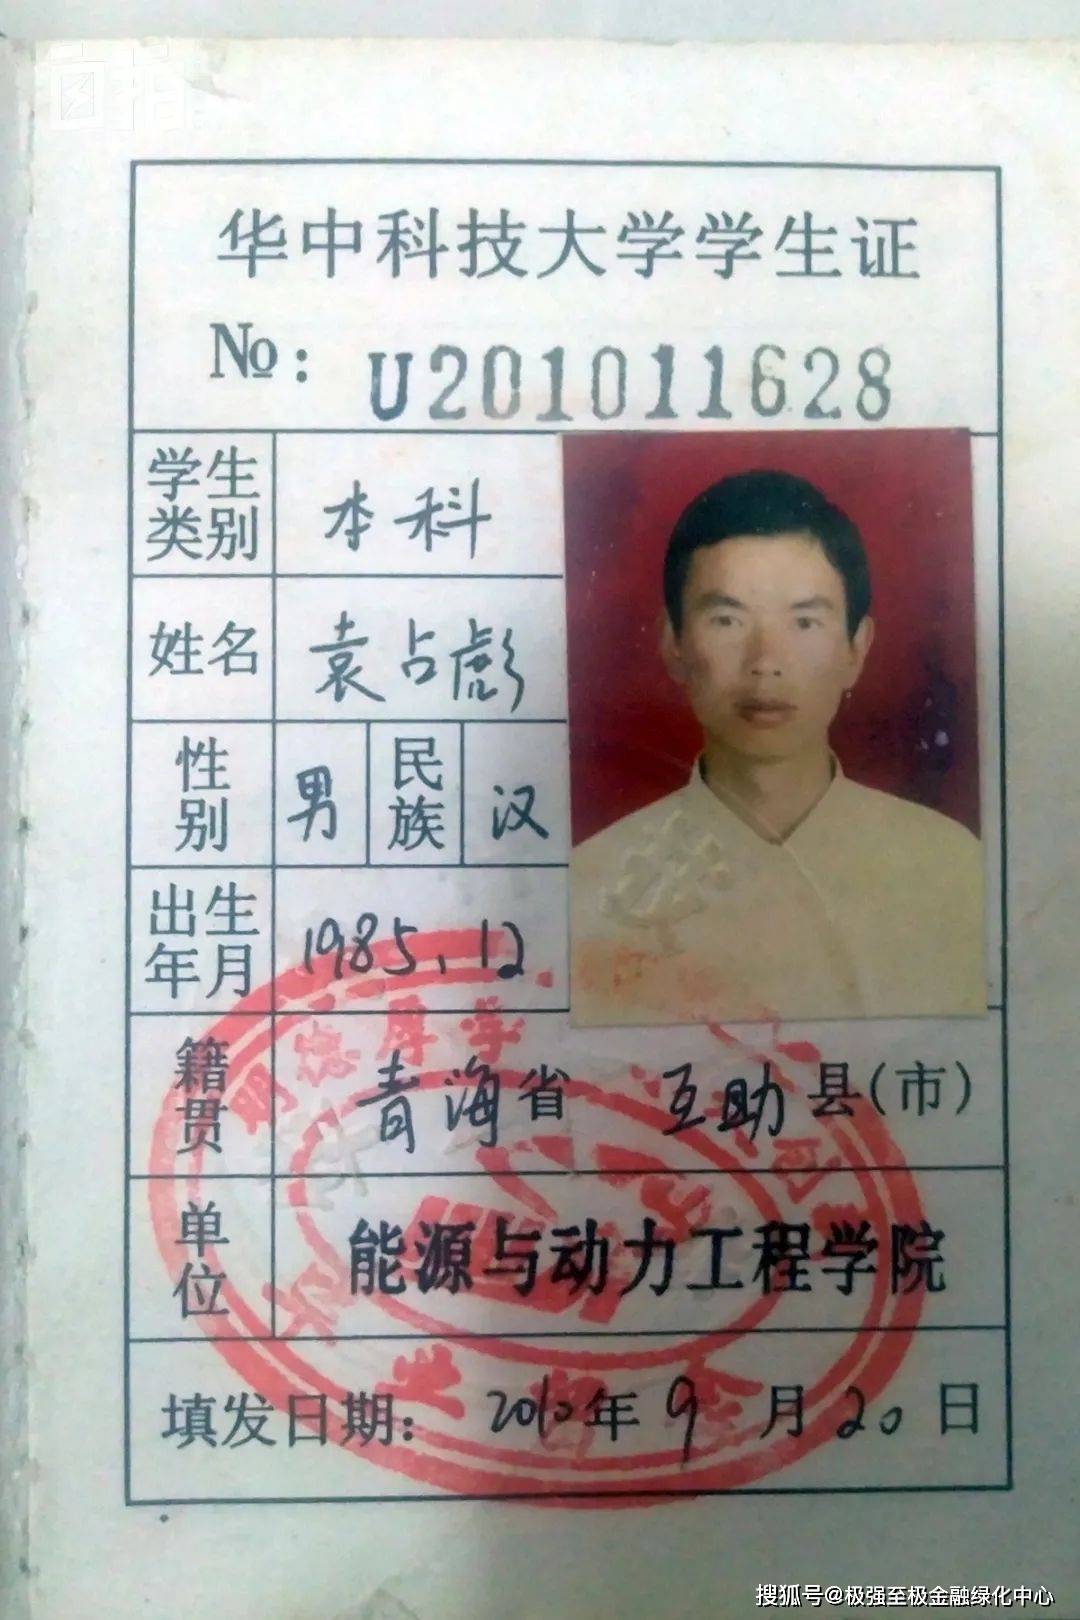 自拍
华中科技大学学生证
No: U201011628
学生类别 本科
姓名 袁占彪
性别 男 民族 汉
出生年月 1985.12
籍贯 青海省 互助县(市)
单位 能源与动力工程学院
填发日期: 2010年9月20日
明德厚学
搜狐号@极强至极金融绿化中心